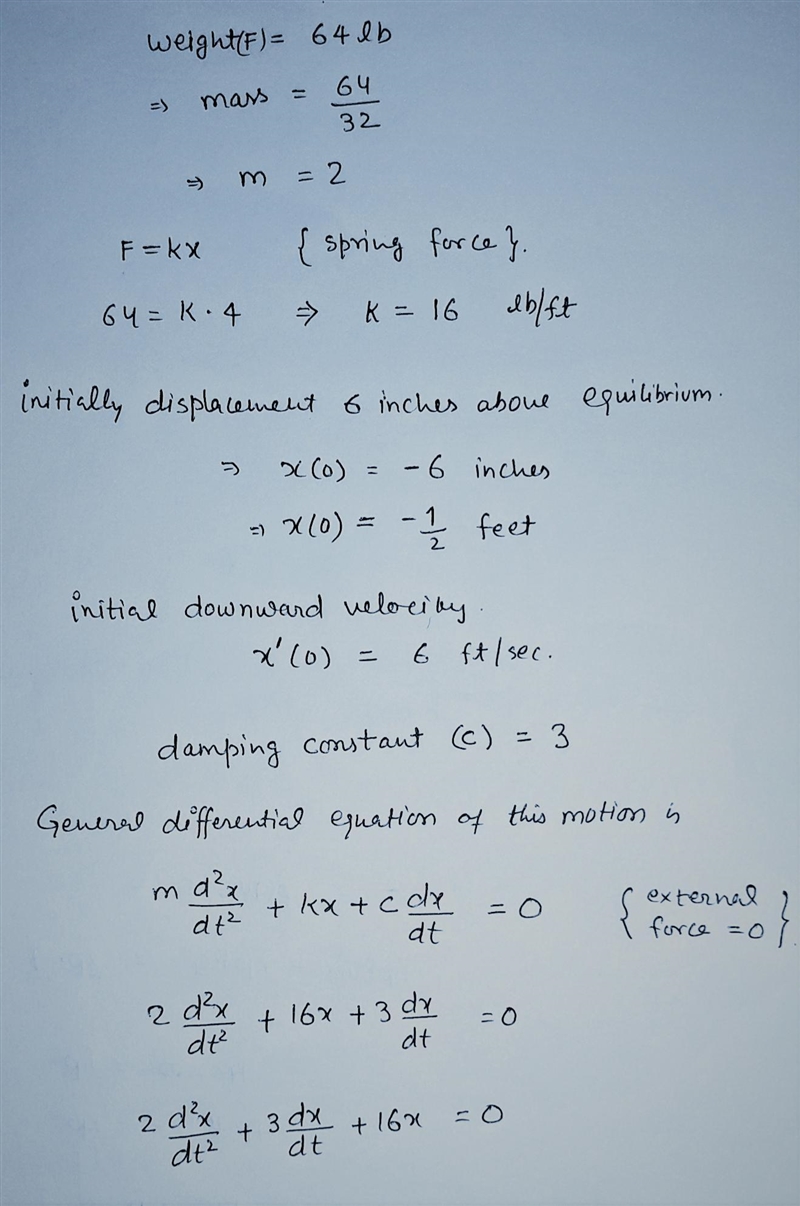 weight(F) = 64 lb
⇒ mass = 64/32
⇒ m = 2
F = kx { spring force }.
64 = K · 4 ⇒ K = 16 lb/ft
initially displacement 6 inches above equilibrium.
⇒ x(0) = -6 inches
⇒ x(0) = -1/2 feet
initial downward velocity.
x'(0) = 6 ft/sec.
damping constant (c) = 3
General differential equation of this motion is
m d²x/dt² + kx + c dx/dt = 0 { external force = 0 }
2 d²x/dt² + 16x + 3 dx/dt = 0
2 d²x/dt² + 3 dx/dt + 16x = 0